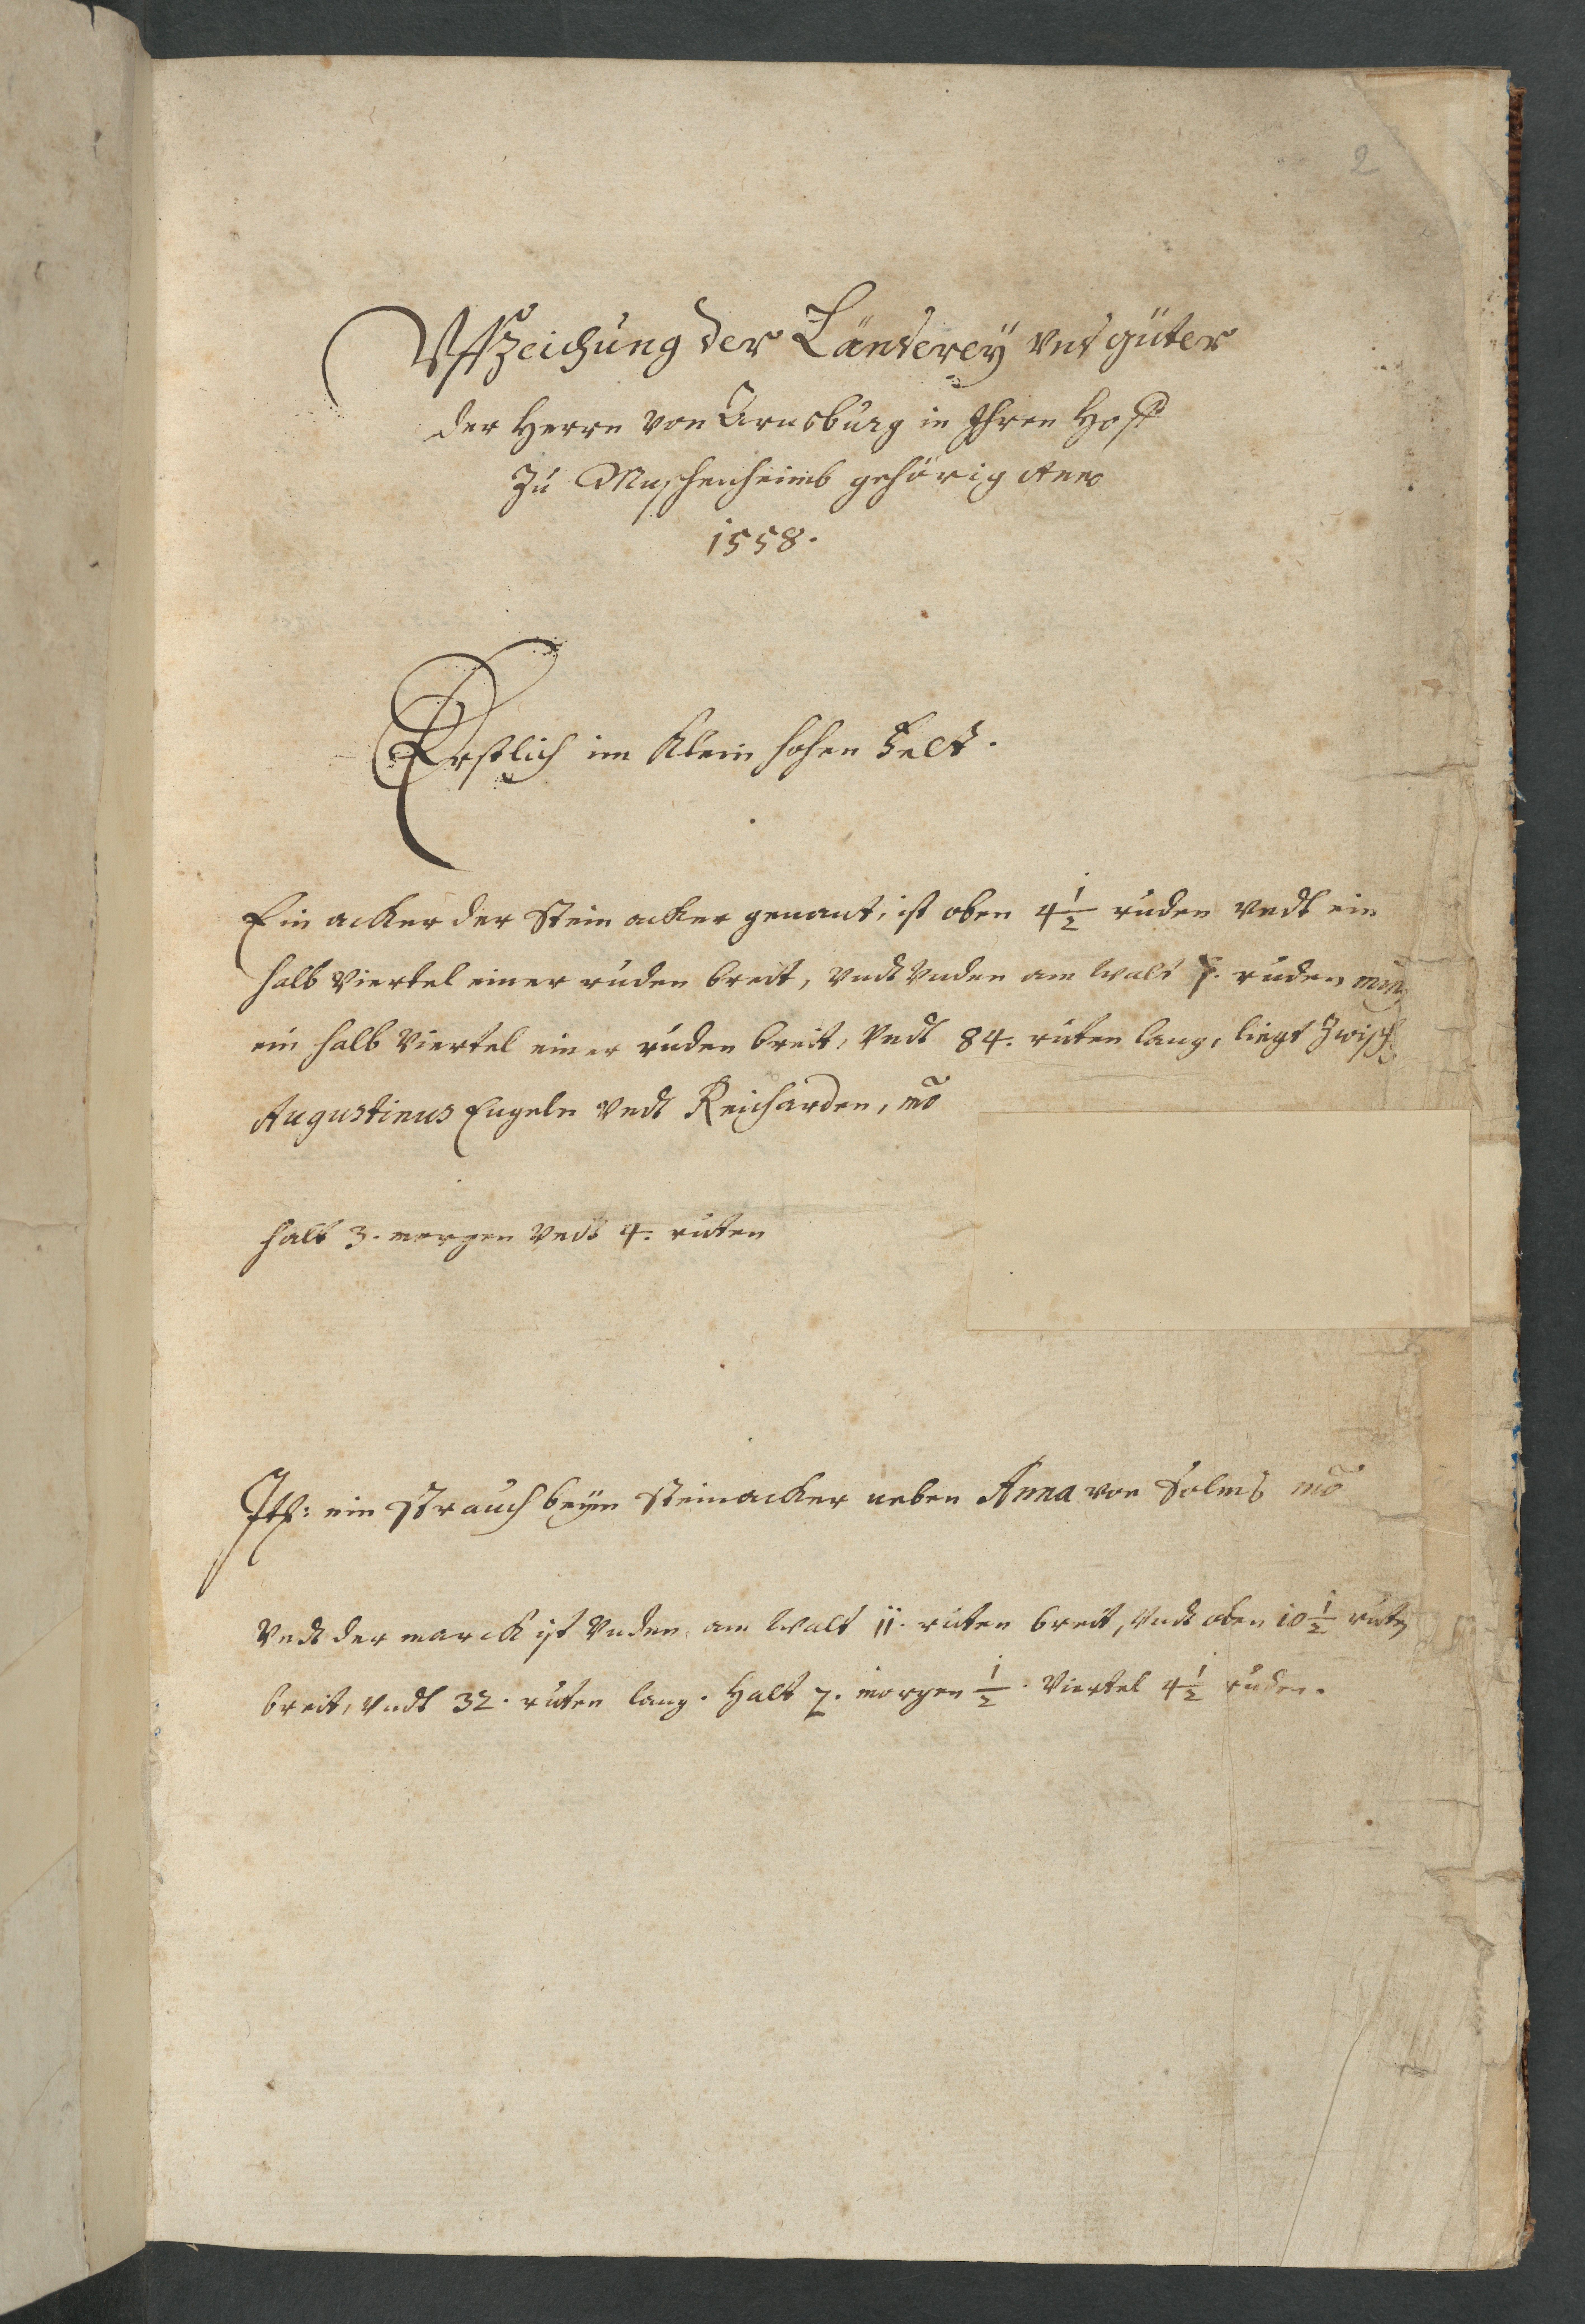 2
Vffzeichung der Länderey vnd güter
der Herrn von Arnsburg in Ihren Hoff
Zu Muschenheimb gehörig Anno
1558.
Erstlich im Klein hohen Felt.
Ein acker der Stein acker genant, ist oben 4 1/2 ruden vndt ein
halb viertel einer ruden breit, vndt vnden am Walt 7. ruden
ein halb Viertel einer ruden breit, Vndt 84. ruten lang, liegt Zwisch
Augustinus Engeln vndt Reicharden,
halt 3. morgen vndt 4. ruten
Itē: ein strauch beym Steinacker neben Anna von Solms
vndt der marck ist vnden am Walt 11. ruten breit, vndt oben 10 1/2 rutē
breit, vndt 32. ruten lang. Halt 2. morgen 1/2. Viertel 4 1/2 ruden.